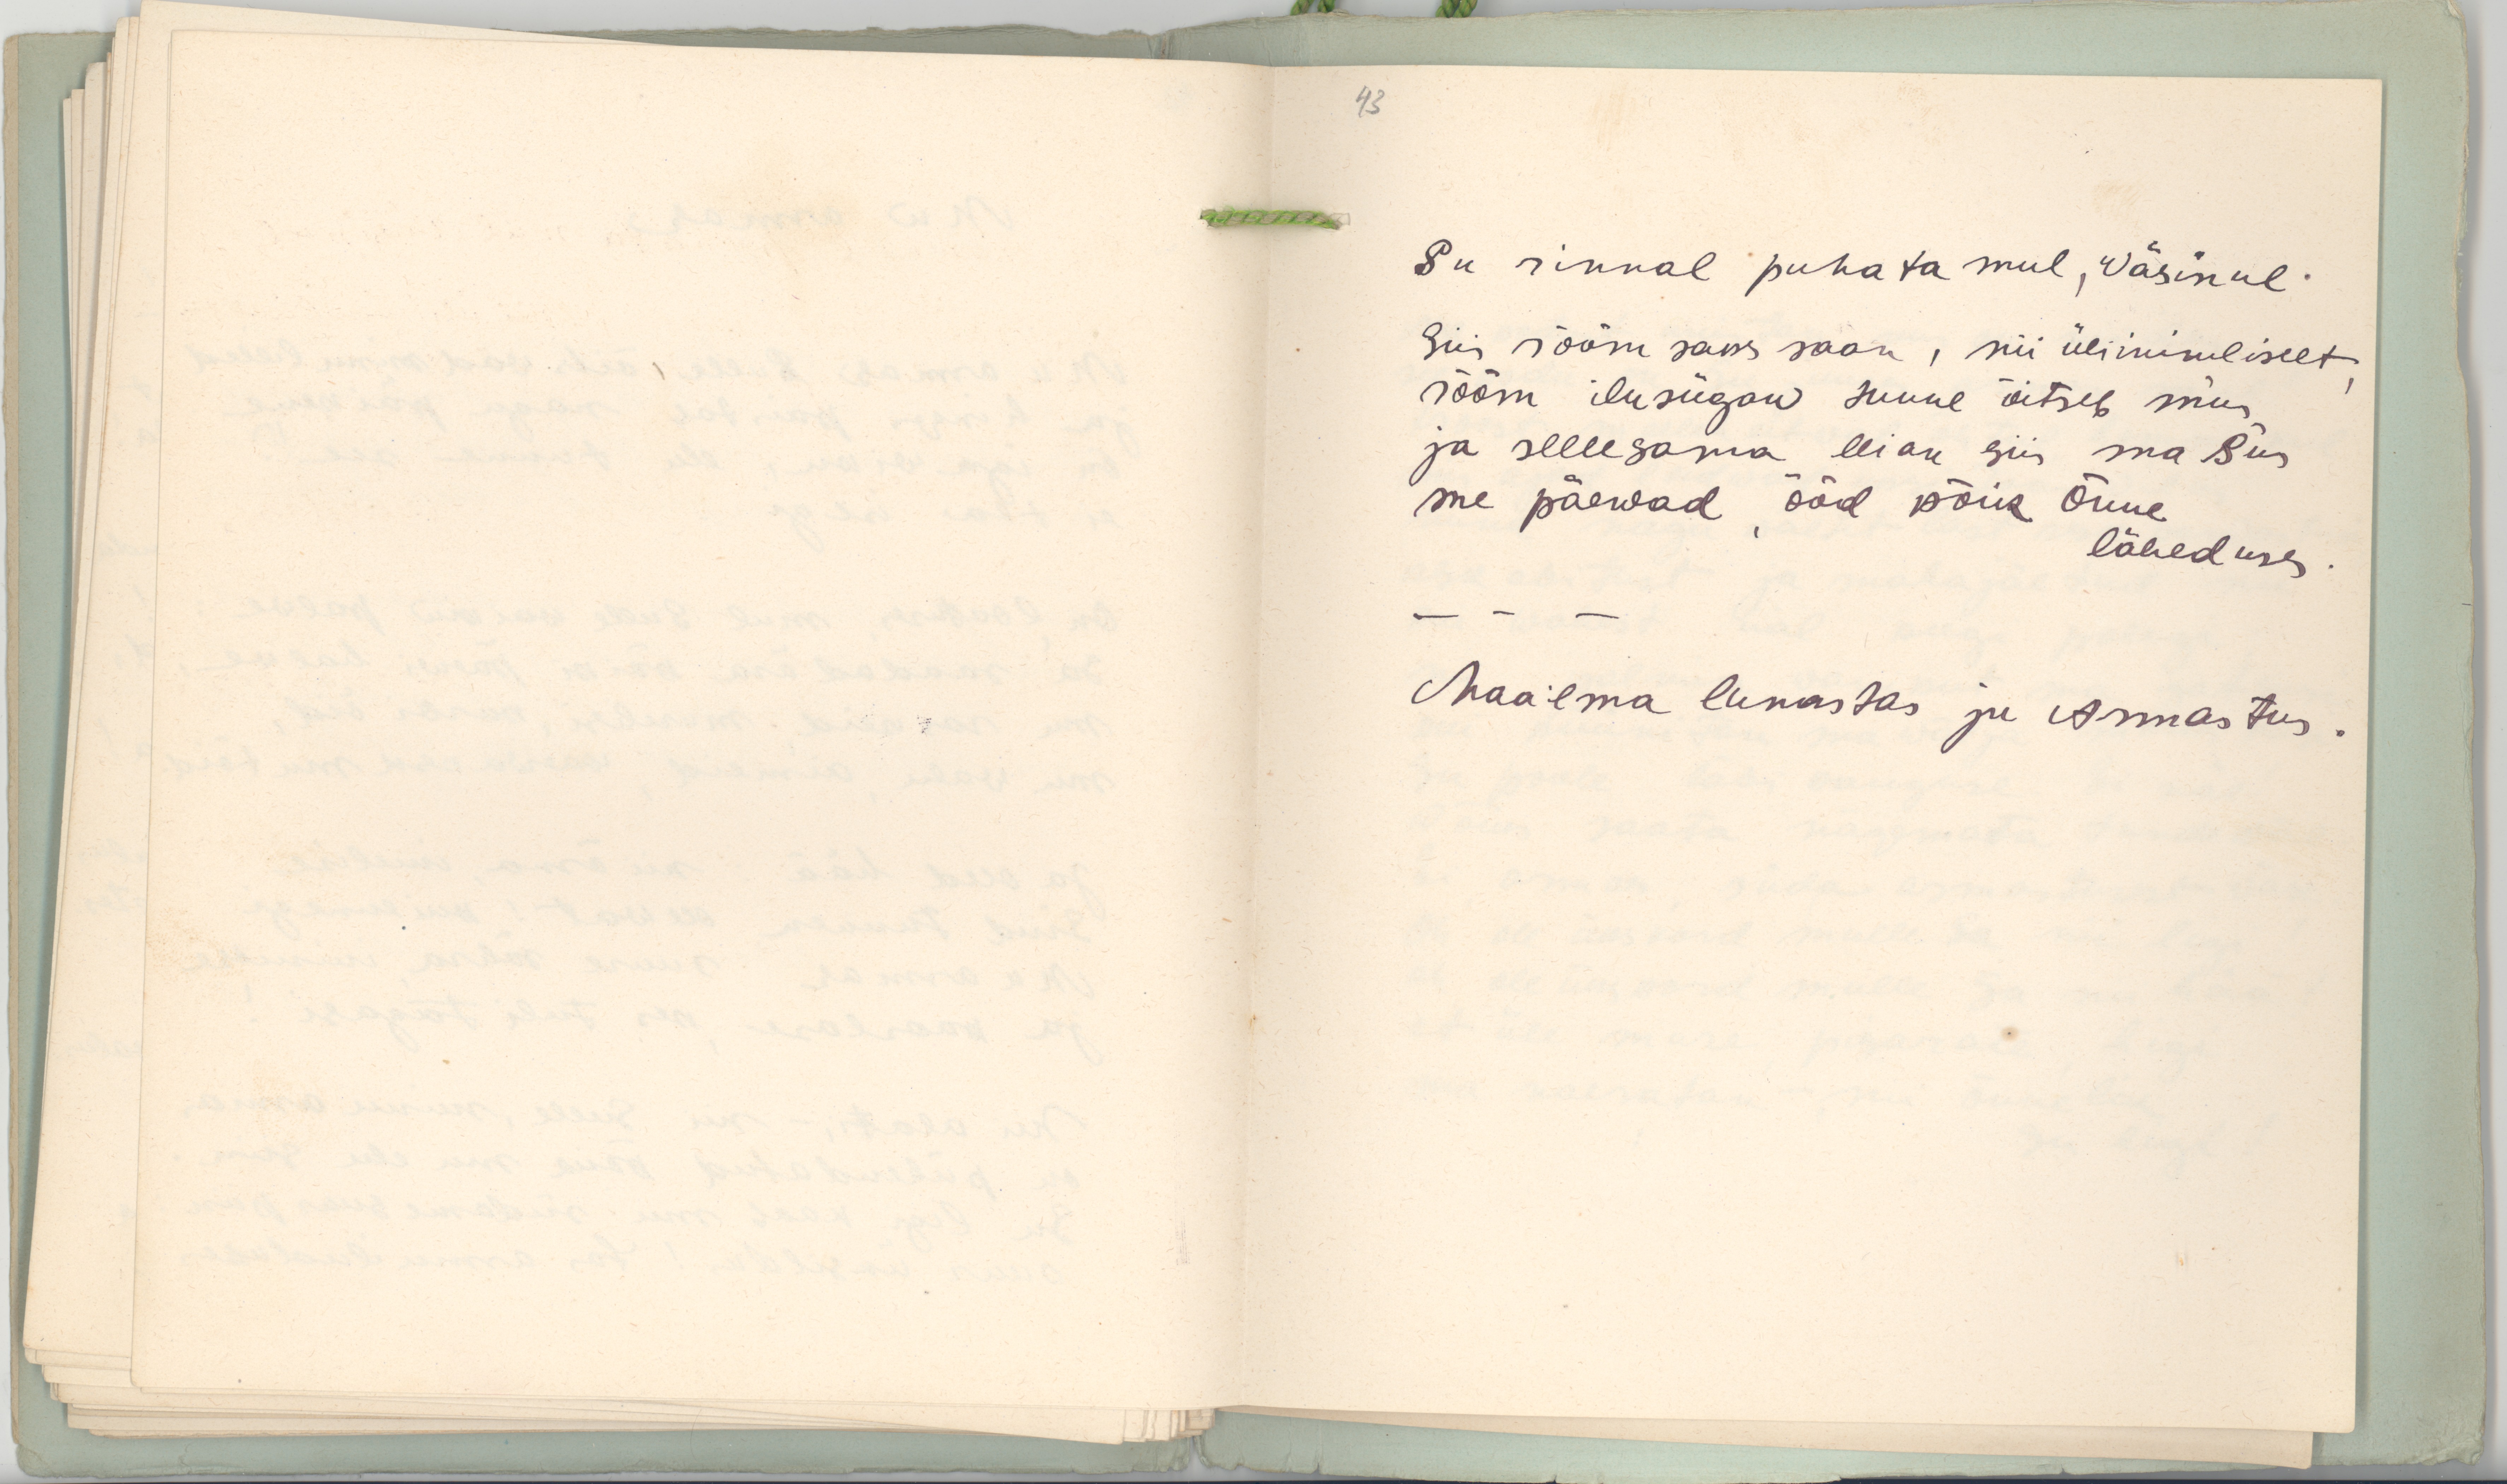 43
Su rinnal puhata mul, wäsinul.
Siis rõõm saks saan, nii üliinimliselt,
rõõm ilusügaw tunne õitseb mus
ja sellesama leian siis ma Sus
me päewad, ööd kõik Õnne
läheduses.
— — —
Maailma lunastas ju Armastus.